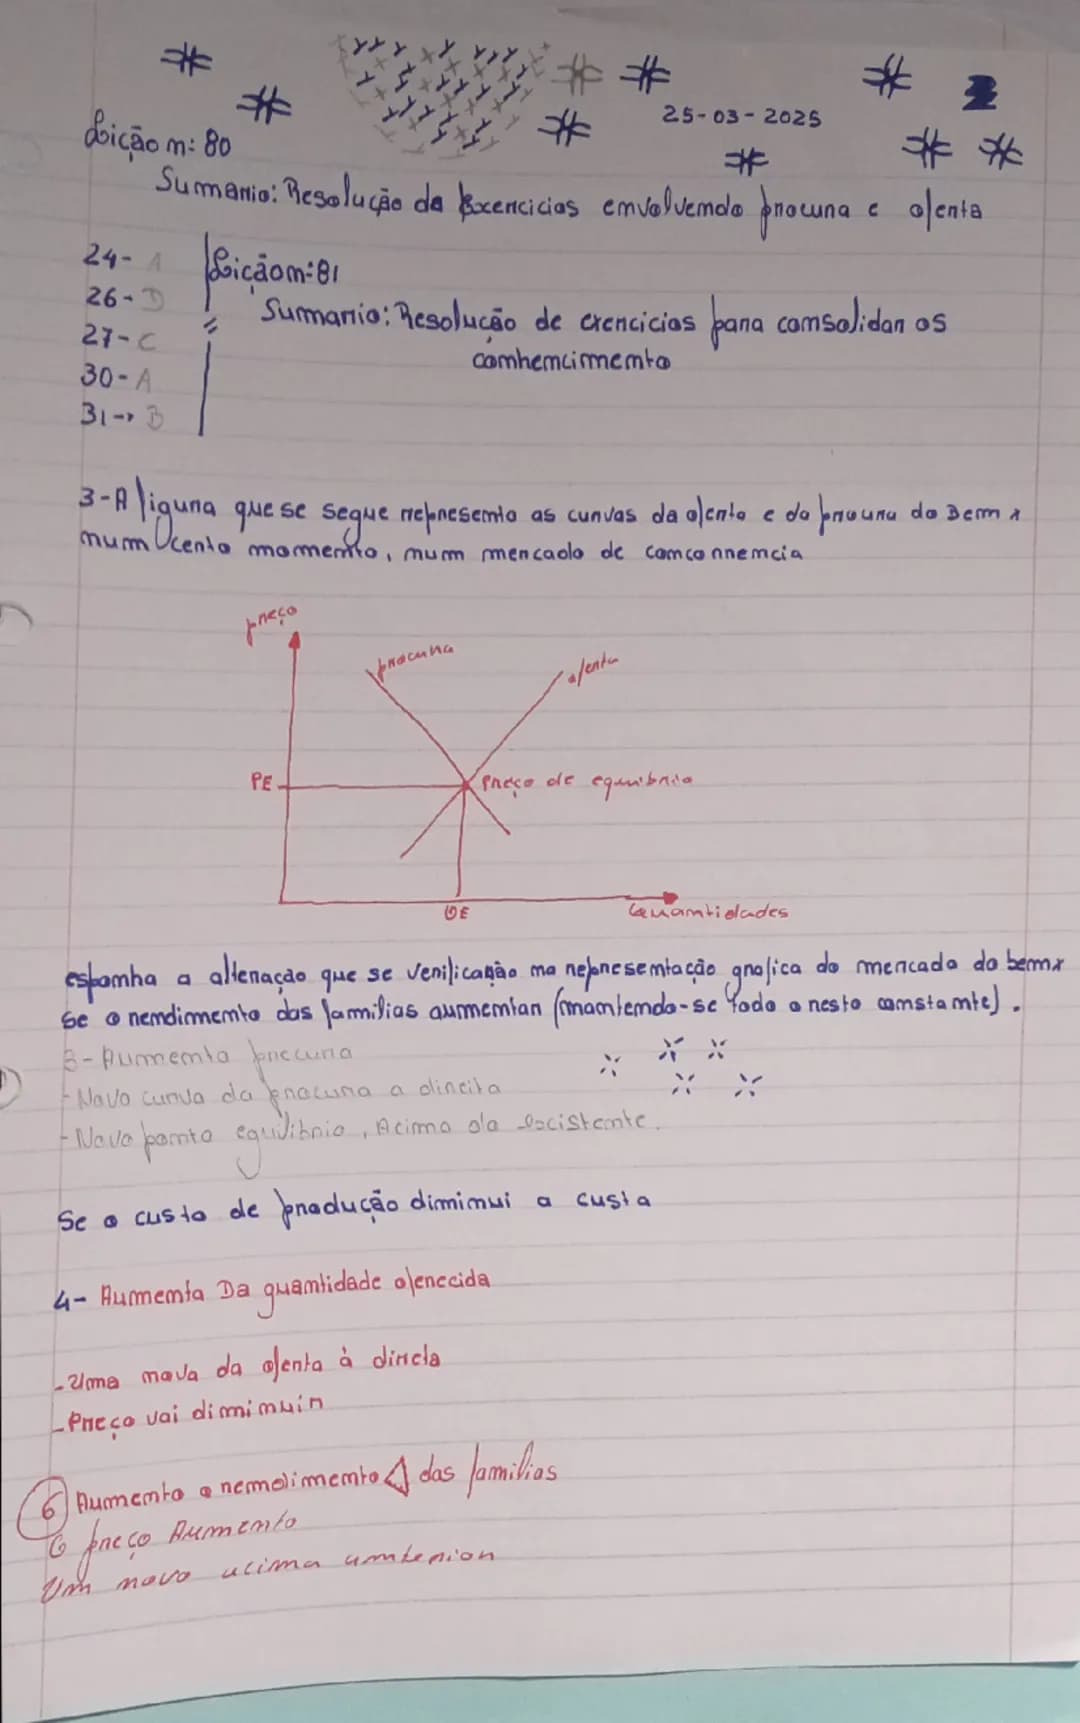 25-03-2025
Lição n: 80
Sumario: Resolução de Exercicios envolvendo procura e oferta
24- A
26- D
27- C
30- A
31-> B
Lição n: 81
Sumario: Resolução de exercicios para consolidar os
conhecimento
3-A figura que se segue representa as curvas da oferta e da procura do Bem x
num certo momento, num mercado de concorrencia
preço
procura
oferta
PE
Preço de equilibrio
QE
Quantidades
esponha a alteração que se verificarão na representação grafica do mercado do bem x
se o rendimento das familias aumentar (mantendo-se todo o resto constante).
3- Aumento procura
- Nova curva da procura a direita
- Novo ponto equilibrio, Acima do Existente.
Se o custo de produção diminui a custa
4- Aumenta Da quantidade oferecida
- Uma nova da oferta à direta
- Preço vai diminuir
6 Aumento o rendimento das familias
O preço Aumento
Um novo acima anterior